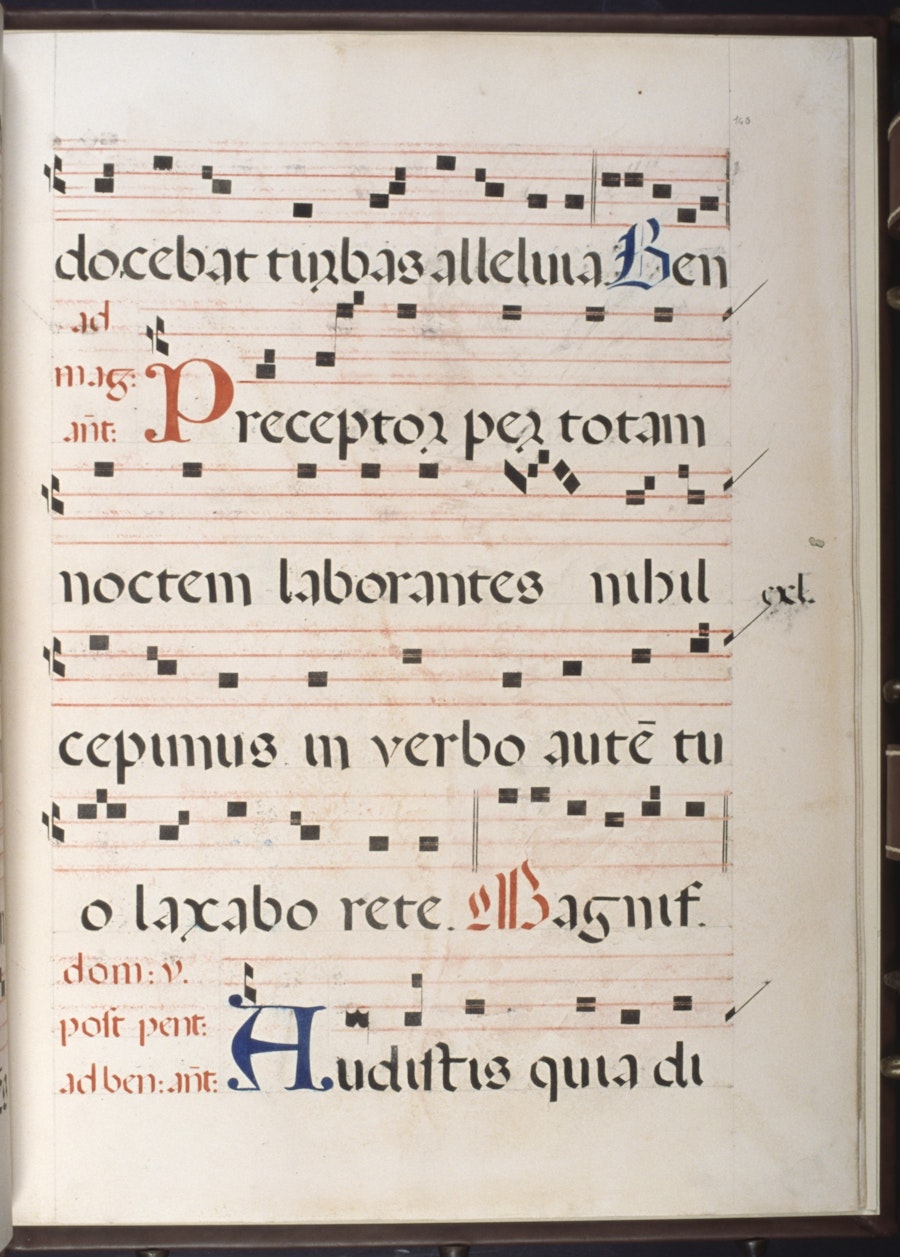 143
docebat turbas alleluia Ben
ad
mag:
añt:
Preceptor per totam
noctem laborantes nihil
cepimus in verbo autē tu
o laxabo rete. Magnif.
dom: v.
post pent:
ad ben: añt:
Audistis quia di